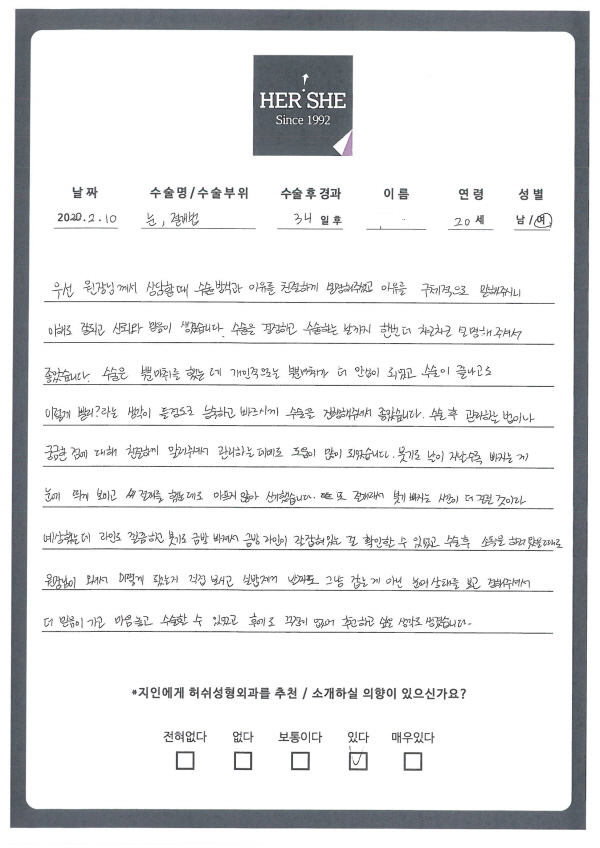 HER SHE
Since 1992
날짜 수술명/수술부위 수술후경과 이름 연령 성별
2020.2.10 눈, 절개법 34 일후 20 세 남/여
우선 원장님께서 상담할때 수술방식과 이유를 친절하게 설명해주셨고 이유를 구체적으로 말해주시니
이해도 잘되고 신뢰와 믿음이 생겼습니다. 수술을 결정하고 수술하는 날까지 한번 더 차근차근 설명해 주셔서
좋았습니다. 수술은 부분마취를 했는데 개인적으로는 부분마취가 더 안심이 되었고 수술이 끝나고도
이렇게 빨리?라는 생각이 들정도로 능숙하고 빠르시게 수술을 진행해주셔서 좋았습니다. 수술 후 관리하는 법이나
궁금한 점에 대해 친절하게 알려주셔서 관리하는데에도 도움이 많이 되었습니다. 붓기도 날이 지날수록 빠지는 게
눈에 띄게 보이고 절개를 했는데도 아프지 않아 신기했습니다. 또 절개라서 붓기 빠지는 시간이 더 걸릴 것이라
예상했는데 라인도 깔끔하고 붓기도 금방 빠져서 금방 라인이 잘 잡혀있는 걸 확인할 수 있었고 수술후 소독을 하러 갔을 때에도
원장님이 와서 이렇게 됐는지 직접 보시고 실밥제거 그냥 잡는게 아닌 눈의 상태를 보고 정해주셔서
더 믿음이 가고 마음 놓고 수술할 수 있었고 후에도 걱정이 없어 추천하고 싶은 생각도 생겼습니다.
*지인에게 허쉬성형외과를 추천 / 소개하실 의향이 있으신가요?
전혀없다 없다 보통이다 있다 매우있다